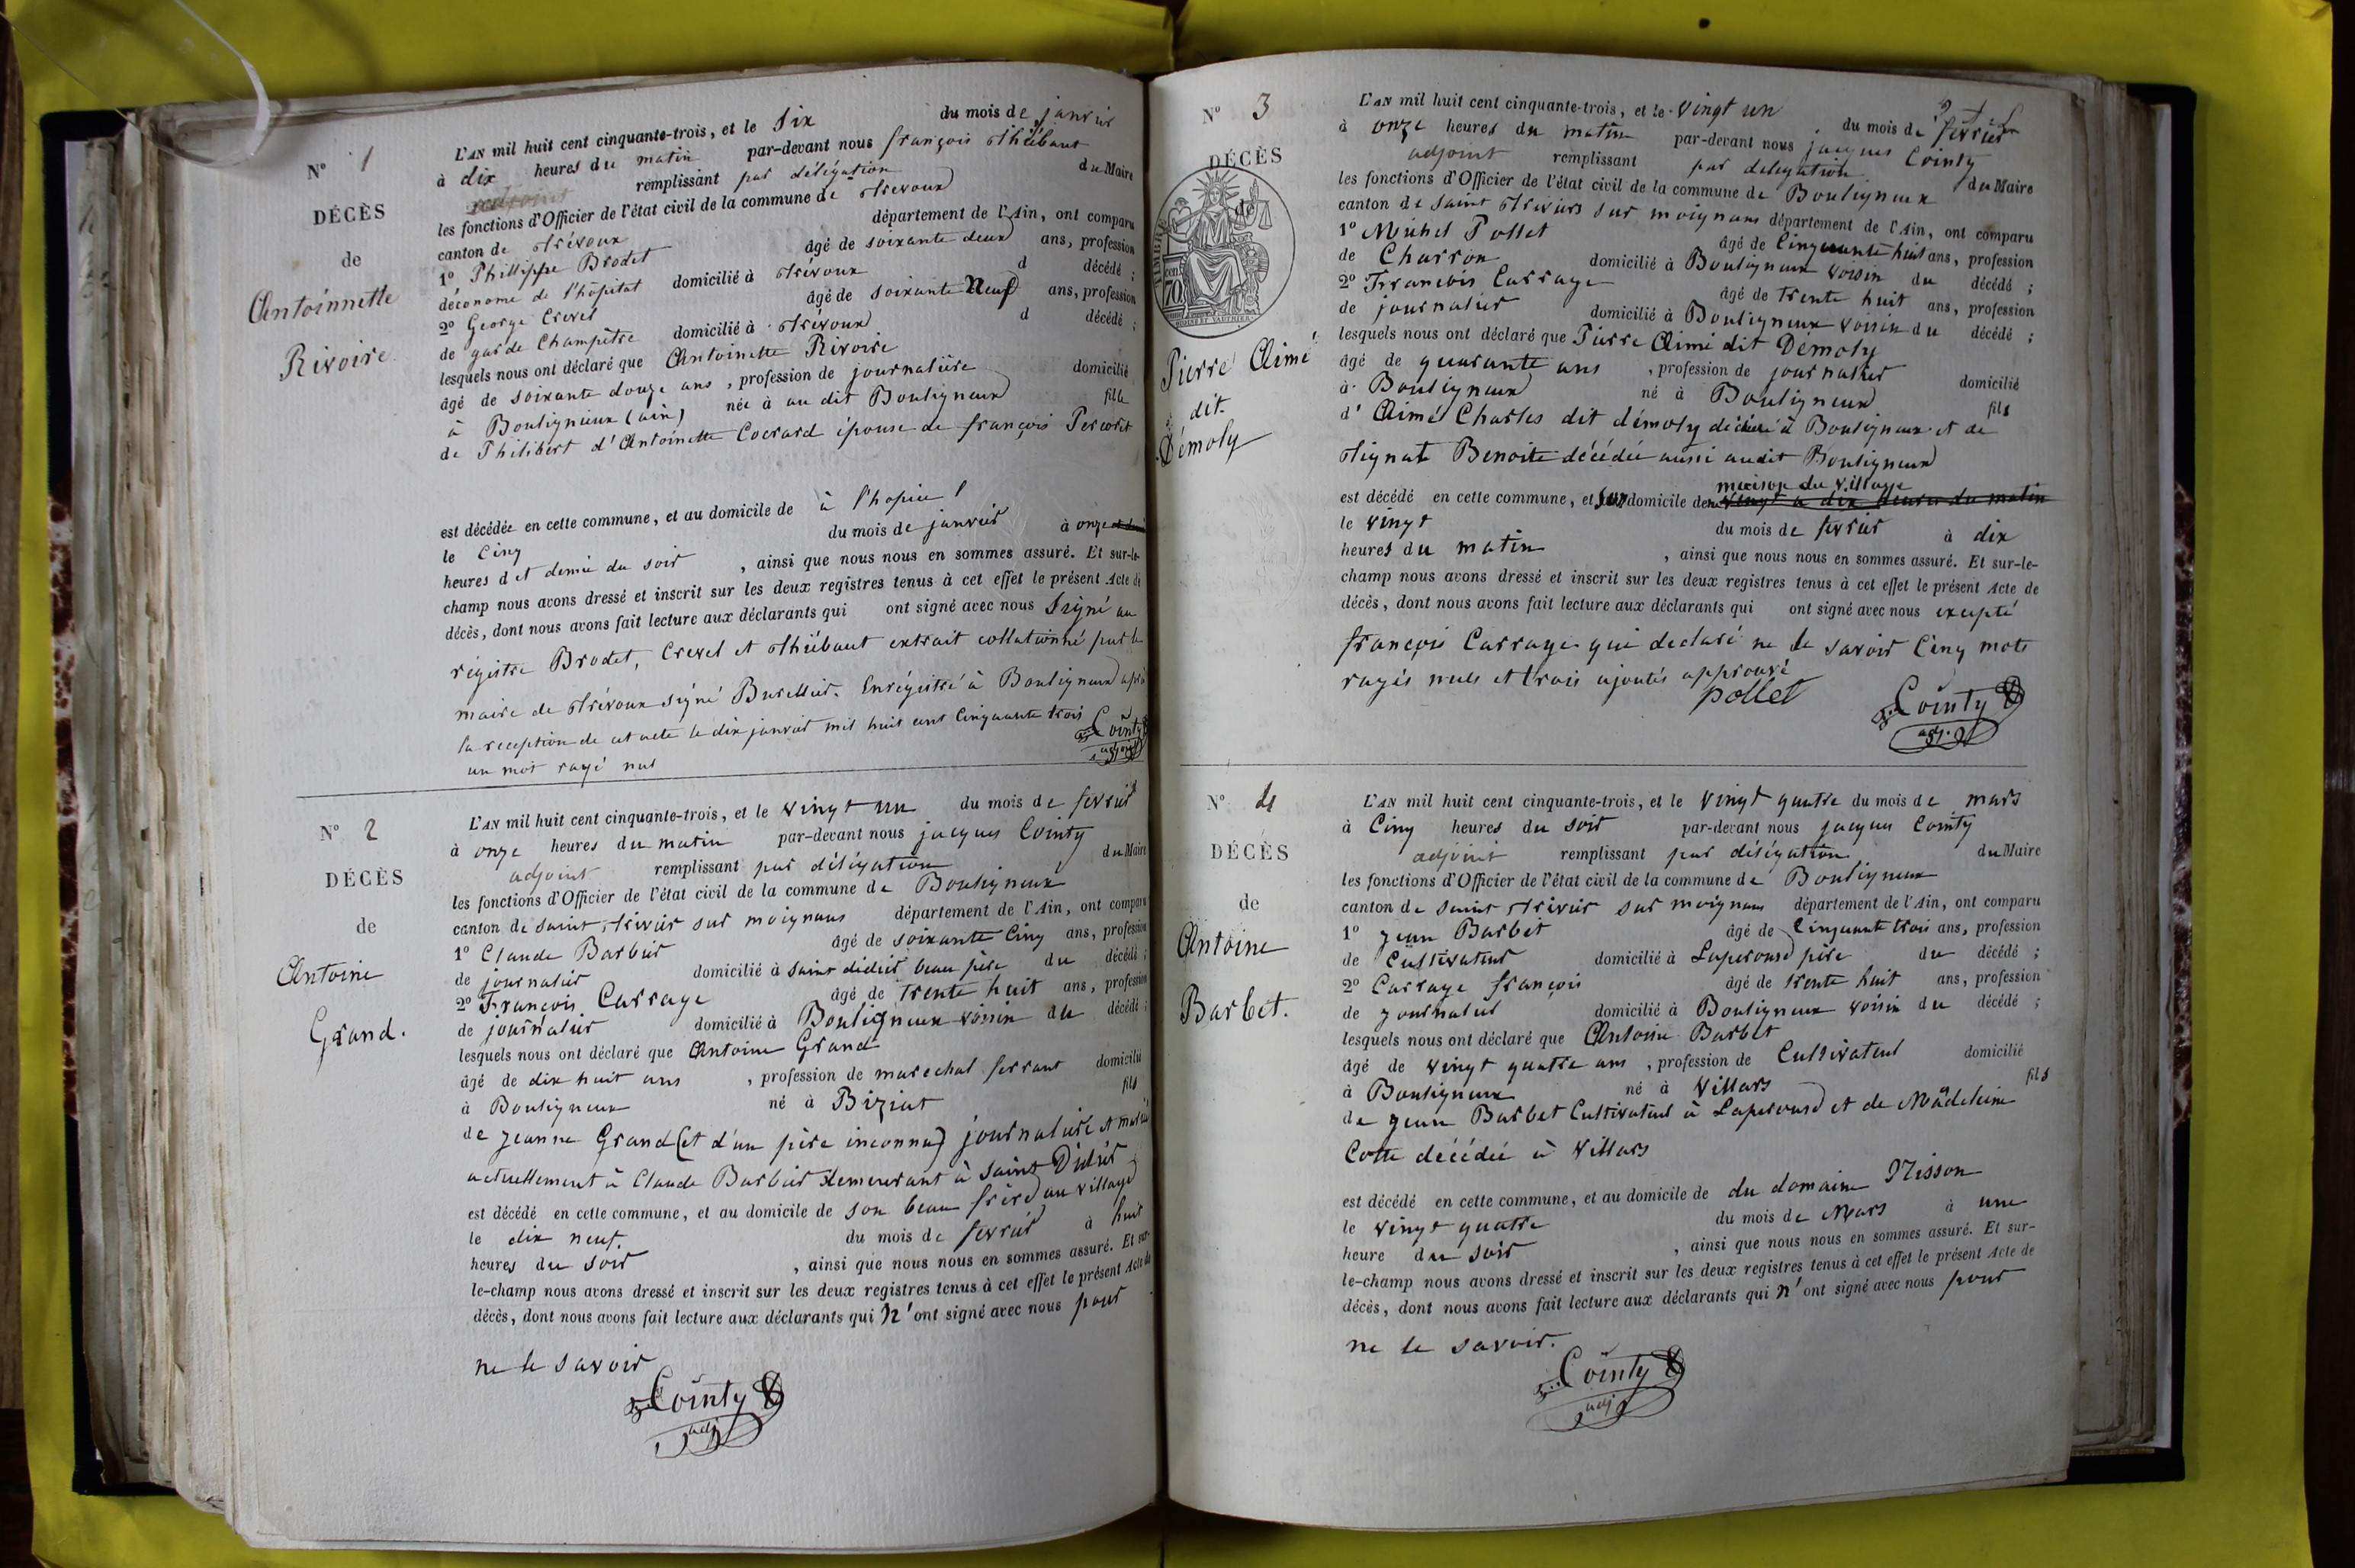 N° 1
DÉCÈS
de
Antoinnette
Rivoire
L'AN mil huit cent cinquante-trois, et le Six du mois de janvier
à dix heures du matin par-devant nous françois Thiébaut
adjoint remplissant par délégation du Maire
les fonctions d'Officier de l'état civil de la commune de Trevoux
canton de Trévoux département de l'Ain, ont comparu
1° Phillippe Brodet âgé de soixante deux ans, profession
déconome de l'hôpital domicilié à Trévoux d décédé ;
2° George Crevel âgé de soixante Neuf ans, profession
de garde Champêtre domicilié à Trévoux d décédé ;
lesquels nous ont déclaré que Antoinette Rivoire
âgé de soixante douze ans, profession de journalière domicilié
à Bouligneux (ain) née à au dit Bouligneux fille
de Philibert d'Antoinette épouse de françois
est décédée en cette commune, et au domicile de à l'hopice
le Cinq du mois de janvier à onze
heures d et demie du soir, ainsi que nous nous en sommes assuré. Et sur-le-
champ nous avons dressé et inscrit sur les deux registres tenus à cet effet le présent Acte de
décès, dont nous avons fait lecture aux déclarants qui ont signé avec nous Signé au
régistre Brodet, Crevel et Thiébaut extrait collationné par le
maire de Trévoux signé Enrégistré à Bouligneux après
la reception de cet acte le dix janvier mil huit cent Cinquante trois
un mot rayé nul
Cointy
adjoint
N° 2
DÉCÈS
de
Antoine
Grand.
L'AN mil huit cent cinquante-trois, et le vingt un du mois de fevrier
à onze heures du matin par-devant nous jacques Cointy
adjoint remplissant par délégation du Maire
les fonctions d'Officier de l'état civil de la commune de Bouligneux
canton de saint trivier sur moignans département de l'Ain, ont comparu
1° Claude Barbier âgé de soixante Cinq ans, profession
de journalier domicilié à saint didier beau père du décédé ;
2° François Carrage âgé de trente huit ans, profession
de journalier domicilié à Bouligneux voisin du décédé ;
lesquels nous ont déclaré que Antoine Grand
âgé de dix huit ans, profession de marechal ferrant domicilié
à Bouligneux né à Biziat fils
de jeanne Grand (et d'un père inconnu) journalière et mariée
actuellement à Claude Barbier demeurant à saint Didier
est décédé en cette commune, et au domicile de son beau frère au village
le dix neuf du mois de fevrier à huit
heures du soir, ainsi que nous nous en sommes assuré. Et sur-
le-champ nous avons dressé et inscrit sur les deux registres tenus à cet effet le présent Acte de
décès, dont nous avons fait lecture aux déclarants qui n'ont signé avec nous pour
ne le savoir
Cointy
adj
N° 3
DÉCÈS
de
TIMBRE
70
Pierre Aimé
dit
Démoly
L'AN mil huit cent cinquante-trois, et le vingt un du mois de fevrier
à onze heures du matin par-devant nous jacques Cointy
adjoint remplissant par delegation du Maire
les fonctions d'Officier de l'état civil de la commune de Bouligneux
canton de saint Triviers sur moignans département de l'Ain, ont comparu
1° Michel Pollet âgé de Cinquante huit ans, profession
de Charron domicilié à Bouligneux voisin du décédé ;
2° Francois Carrage âgé de trente huit ans, profession
de journalier domicilié à Bouligneux voisin du décédé ;
lesquels nous ont déclaré que Pierre Aimé dit Démoly
âgé de quarante ans, profession de journalier domicilié
à Bouligneux né à Bouligneux fils
d'Aimé Charles dit démoly décédé à Bouligneux et de
Tignat Benoite décédée aussi audit Bouligneux
maison du village
est décédé en cette commune, et domicile de vingt a dix heures du matin
le vingt du mois de fevrier à dix
heures du matin, ainsi que nous nous en sommes assuré. Et sur-le-
champ nous avons dressé et inscrit sur les deux registres tenus à cet effet le présent Acte de
décès, dont nous avons fait lecture aux déclarants qui ont signé avec nous excepté
françois Carrage qui declaré ne le savoir Cinq mots
rayés nuls et trois ajoutés approuvé
pollet
Cointy
adj.
N° 4
DÉCÈS
de
Antoine
Barbet.
L'AN mil huit cent cinquante-trois, et le vingt quatre du mois de mars
à Cinq heures du soir par-devant nous jacques Cointy
adjoint remplissant par délégation du Maire
les fonctions d'Officier de l'état civil de la commune de Bouligneux
canton de saint trivier sur moignans département de l'Ain, ont comparu
1° jean Barbet âgé de Cinquante trois ans, profession
de Cultivateur domicilié à Laperouse père du décédé ;
2° Carrage françois âgé de trente huit ans, profession
de journalier domicilié à Bouligneux voisin du décédé ;
lesquels nous ont déclaré que Antoine Barbet
âgé de vingt quatre ans, profession de Cultivateur domicilié
à Bouligneux né à Villars fils
de jean Barbet Cultivateur à Laperouse et de Madeleine
Cotte décédée à Villars
est décédé en cette commune, et au domicile de du domaine Nisson
le vingt quatre du mois de Mars à une
heure du soir, ainsi que nous nous en sommes assuré. Et sur-
le-champ nous avons dressé et inscrit sur les deux registres tenus à cet effet le présent Acte de
décès, dont nous avons fait lecture aux déclarants qui n'ont signé avec nous pour
ne le savoir.
Cointy
adj